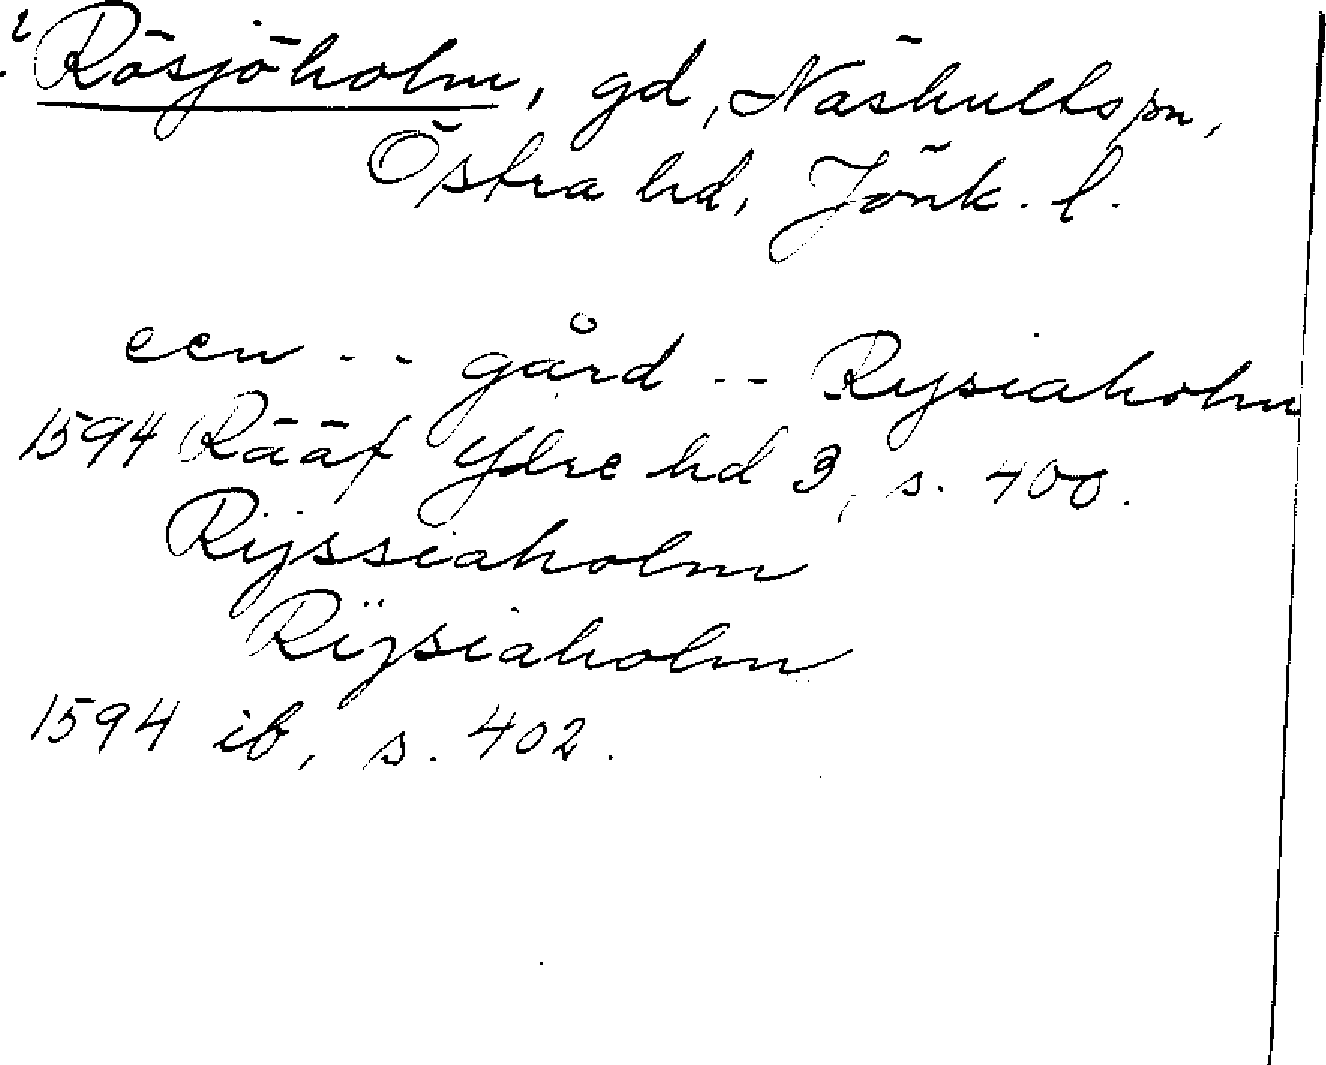 Rösjöholm, gd, Näshults sn,
Östra hd, Jönk. l.
een -- gård -- Rysiaholm
1594 Rääf Ydre hd 3, s. 400.
Rijssiaholm
Rijsiaholm
1594 ib, s. 402.